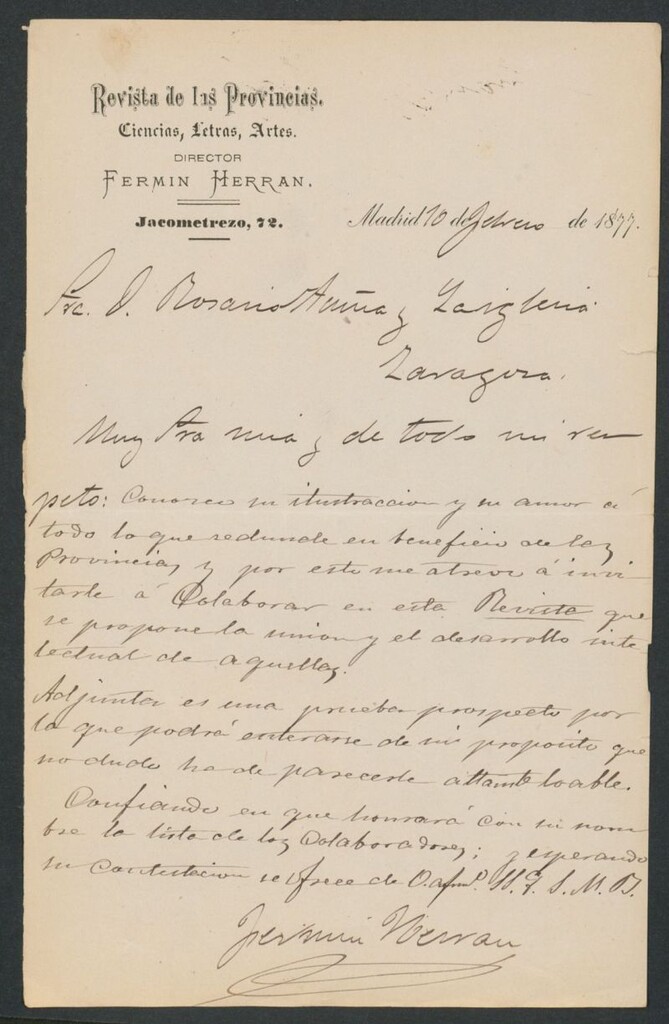 Revista de las Provincias.
Ciencias, Letras, Artes.
DIRECTOR
FERMIN HERRAN.
Jacometrezo, 72.
Madrid 10 de Febrero de 1877.
Sra. D. Rosario Acuña y Laiglesia
Zaragoza.
Muy Sra mia y de todo mi res
peto: Conozco su ilustraccion y su amor á
todo lo que redunde en beneficio de las
Provincias y por esto me atrevo á invi
tarle á Colaborar en esta Revista que
se propone la union y el desarrollo inte
lectual de aquellas.
Adjunta es una prueba prospecto por
la que podrá enterarse de mi proposito que
no dudo ha de parecerle altamte loable.
Confiando en que honrará con su nom
bre la lista de los Colaboradores; y esperando
su Contestacion se ofrece de V. afmo. S. S. Q. S. M. B.
Fermin Herran